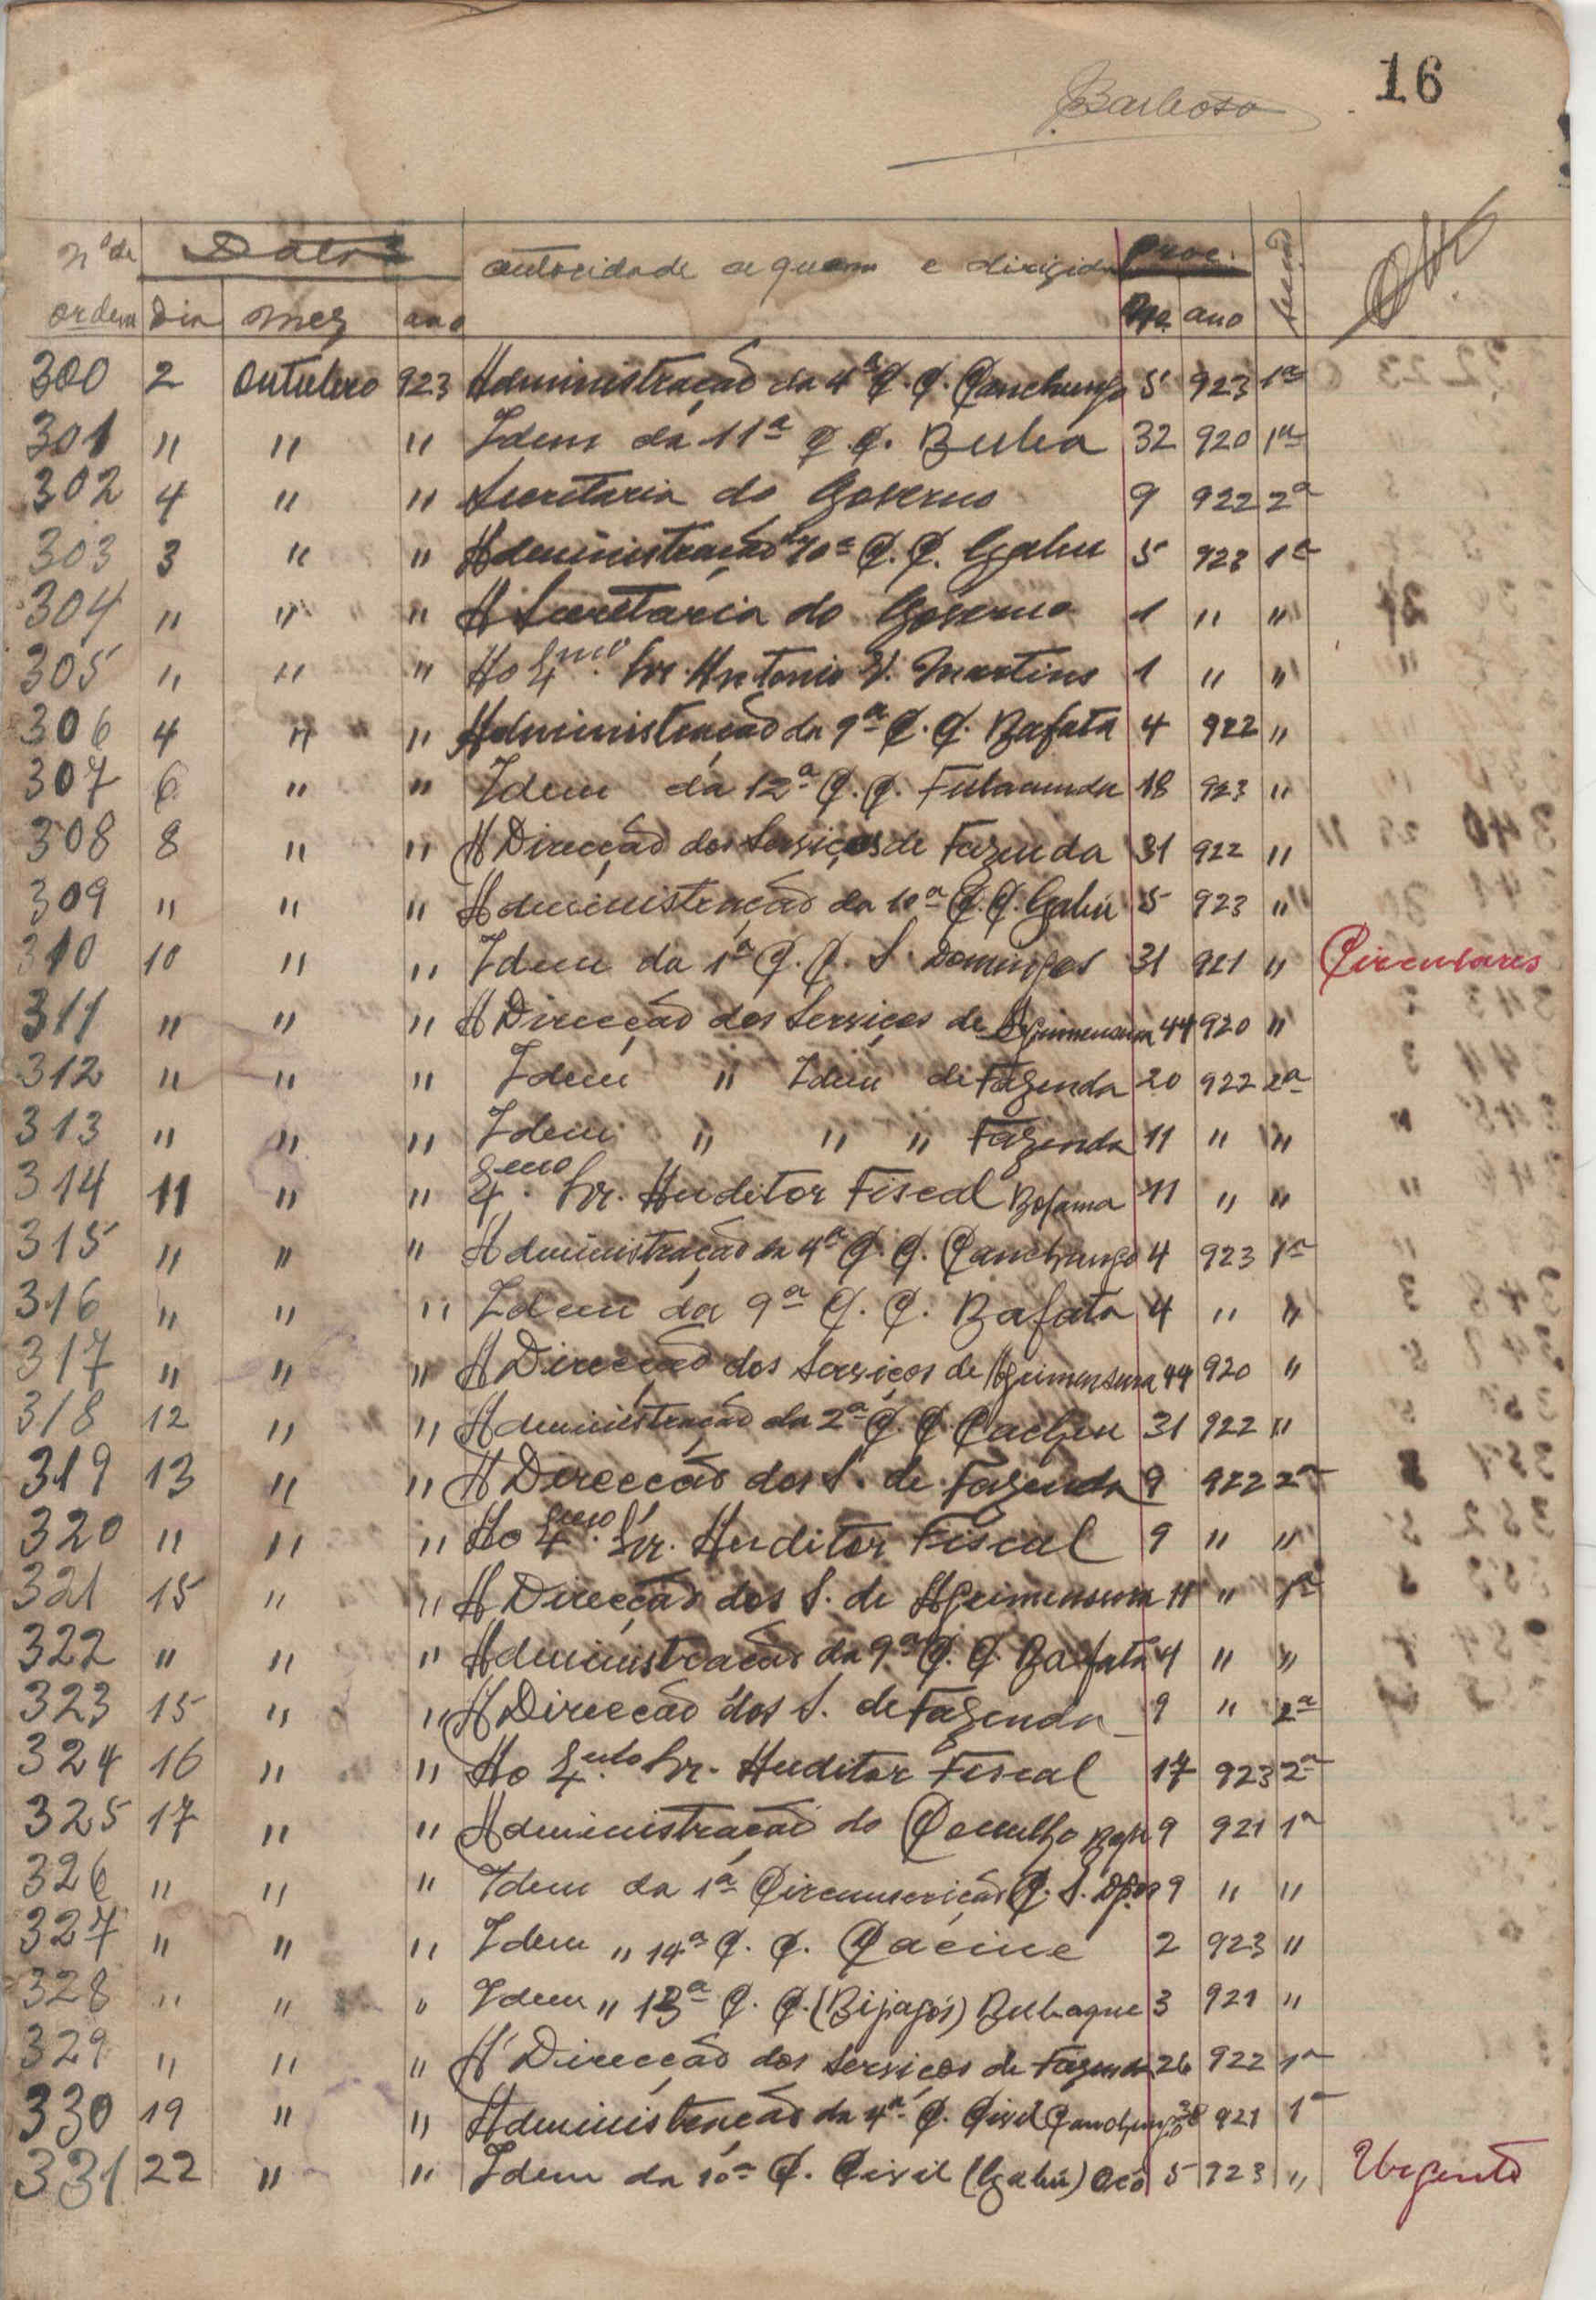 16
Barbosa
Nº de Datas autoridade a quem é dirigida Proc.
ordem dia mez ano Nº ano
300 2 Outubro 923 Administração da 4ª C. C. Canchungo 5 923 1ª
301 " " " Idem da 11ª C. C. Buba 32 920 1ª
302 4 " " Secretaria do Governo 9 922 2ª
303 3 " " Administração da 10ª C. C. Gabu 5 923 1ª
304 " " " A Secretaria do Governo 1 " "
305 " " " Ao Exmo. Snr. Antonio S. Martins 1 " "
306 4 " " Administração da 9ª C. C. Bafata 4 922 "
307 6 " " Idem da 12ª C. C. Fulacunda 18 923 "
308 8 " " A Direcção dos Serviços de Fazenda 31 922 "
309 " " " Administração da 10ª C. C. Gabú 5 923 "
310 10 " " Idem da 1ª C. C. S. Domingos 31 921 " Circulares
311 " " " A Direcção dos Serviços de Agrimensura 44 920 "
312 " " " Idem " Idem de Fazenda 20 922 2ª
313 " " " Idem " " " Fazenda 11 " "
314 11 " " Exmo. Snr. Auditor Fiscal Bolama 11 " "
315 " " " Administração da 4ª C. C. Canchungo 4 923 1ª
316 " " " Idem da 9ª C. C. Bafata 4 " "
317 " " " A Direcção dos Serviços de Agrimensura 44 920 "
318 12 " " Administração da 2ª C. C. Cacheu 31 922 "
319 13 " " A Direcção dos S. de Fazenda 9 922 2ª
320 " " " Ao Exmo. Snr. Auditor Fiscal 9 " "
321 15 " " A Direcção dos S. de Agrimensura 11 " 1ª
322 " " " Administração da 9ª C. C. Bafatá 4 " "
323 15 " " A Direcção dos S. de Fazenda 9 " 2ª
324 16 " " Ao Exmo. Snr. Auditor Fiscal 17 923 2ª
325 17 " " Administração do Concelho 9 921 1ª
326 " " " Idem da 1ª Circunscrição C. S. 9 " "
327 " " " Idem " 14ª C. C. Cacine 2 923 "
328 " " " Idem " 13ª C. C. (Bijagós) Bubaque 3 921 "
329 " " " A Direcção dos Serviços de Fazenda 26 922 1ª
330 19 " " Administração da 4ª C. Civil Canchungo 38 921 1ª
331 22 " " Idem da 10ª C. Civil (Gabú) Oco 5 923 " Urgente